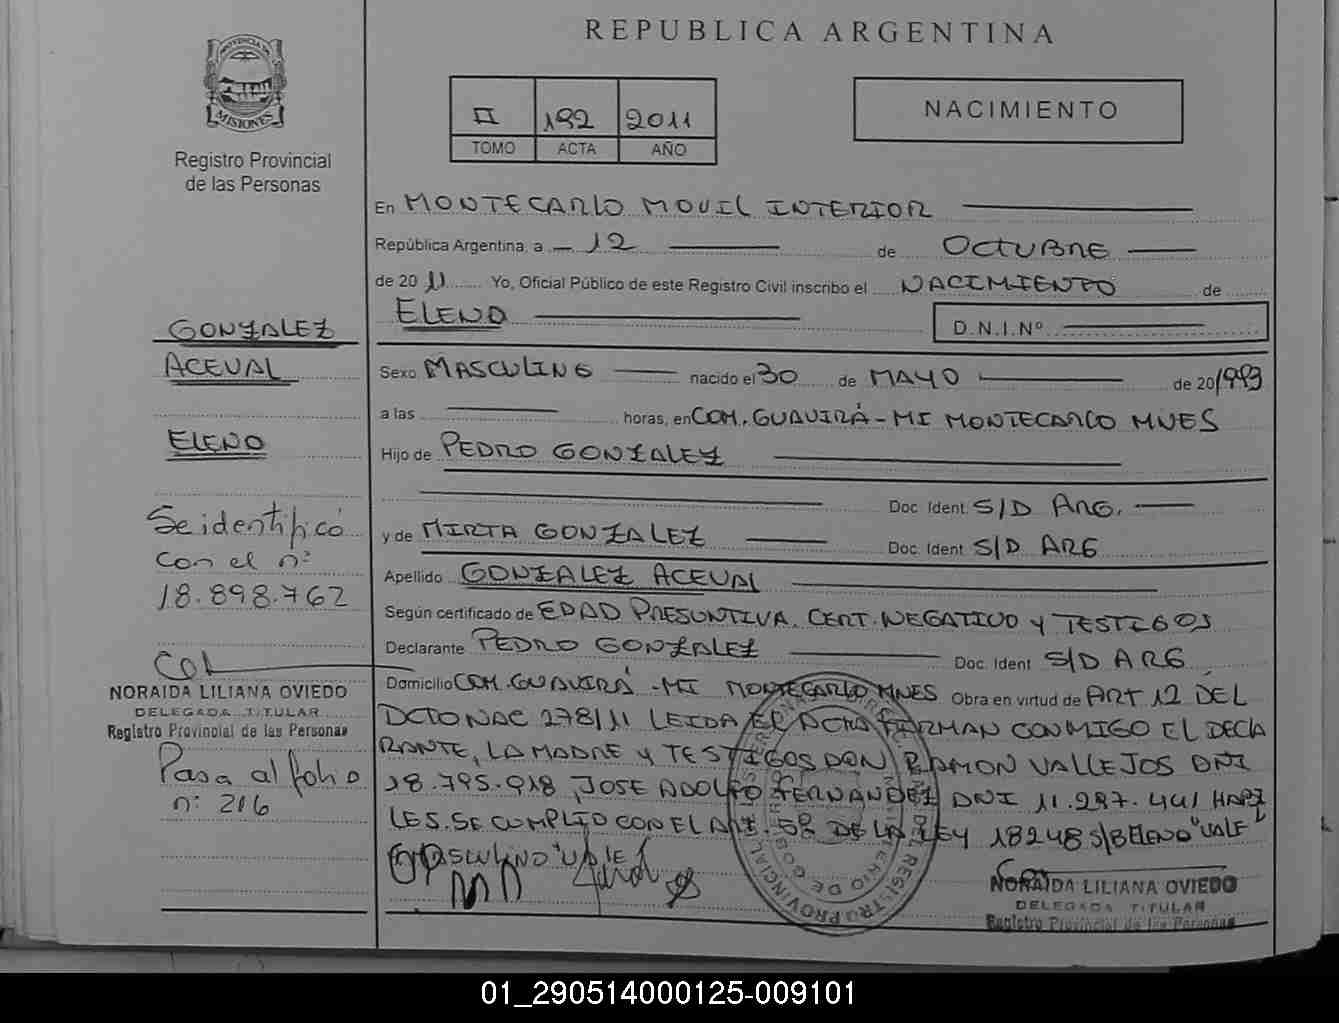 REPUBLICA ARGENTINA
PROVINCIA DE
MISIONES
Registro Provincial
de las Personas
II 192 2011
TOMO ACTA AÑO
NACIMIENTO
En MONTECARLO MOVIL INTERIOR
República Argentina, a 12 de OCTUBRE
de 20 11 Yo, Oficial Público de este Registro Civil inscribo el NACIMIENTO de
ELENO D.N.I.Nº
Sexo MASCULINO nacido el 30 de MAYO de 20/1999
a las horas, en COM. GUAVIRÁ - MI MONTECARLO MNES
Hijo de PEDRO GONZALEZ
Doc. Ident. S/D ARG.
y de MIRTA GONZALEZ Doc. Ident. S/D ARG
Apellido GONZALEZ ACEVAL
Según certificado de EDAD PRESUNTIVA. CERT. NEGATIVO Y TESTIGOS
Declarante PEDRO GONZALEZ Doc. Ident S/D ARG
Domicilio COM. GUAVIRÁ - MI MONTECARLO MNES Obra en virtud de ART 12 DEL
DCTO NAC 278/11 LEIDA EL ACTA FIRMAN CONMIGO EL DECLA
RANTE, LA MADRE Y TESTIGOS DON RAMON VALLEJOS DNI
18.795.918, JOSE ADOLFO FERNANDEZ DNI 11.297.441 HABI
LES. SE CUMPLIO CON EL ART. 5º DE LA LEY 18248 S/B ELENO "VALE"
MASCULINO "VALE"
NORAIDA LILIANA OVIEDO
DELEGADA TITULAR
Registro Provincial de las Personas
GONZALEZ
ACEVAL
ELENO
Se identificó
con el nº
18.898.762
NORAIDA LILIANA OVIEDO
DELEGADA TITULAR
Registro Provincial de las Personas
Pasa al folio
nº 216
01_290514000125-009101